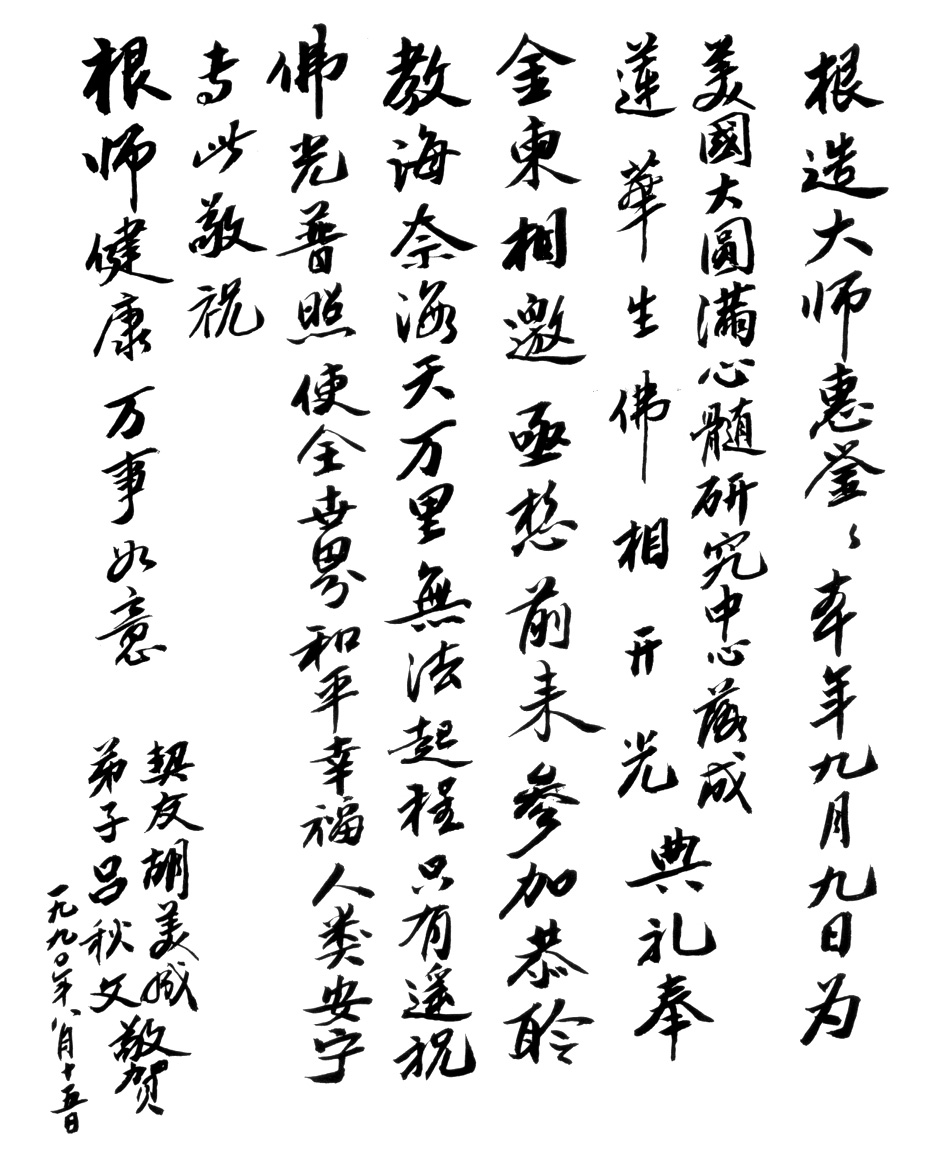 根造大师惠鉴〻本年九月九日为
美國大圓满心髓研究中心落成
莲華生佛相开光典礼奉
金柬相邀亟愁前来參加恭聆
教诲奈海天万里無法起程只有遥祝
佛光普照使全世界和平幸福人类安宁
专此敬祝
根师健康万事如意
契友胡美城敬贺
弟子吕秋文
一九九〇年八月十五日